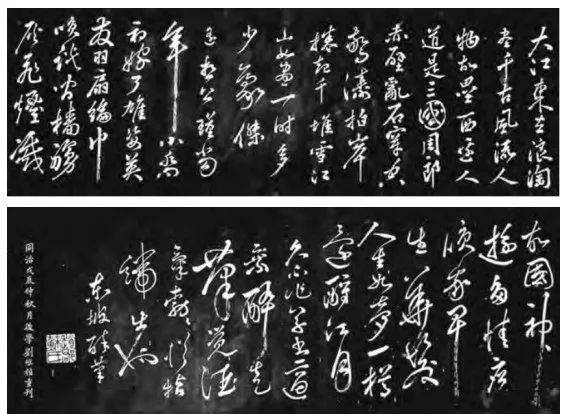 大江東去浪淘
盡千古風流人
物故壘西邊人
道是三國周郎
赤壁亂石穿空
驚濤拍岸
捲起千堆雪江
山如畫一時多
少豪傑
遙想公瑾當
年小喬
初嫁了雄姿英
發羽扇綸巾
笑談間檣艣
灰飛煙滅
故國神
遊多情應
笑我早
生華髮
人生如夢一樽
還酹江月
久不作草書適
乘醉走
筆覺酒
氣勃勃從指
端出也
東坡醉筆
同治戊辰仲秋月後學劉維楨重刊